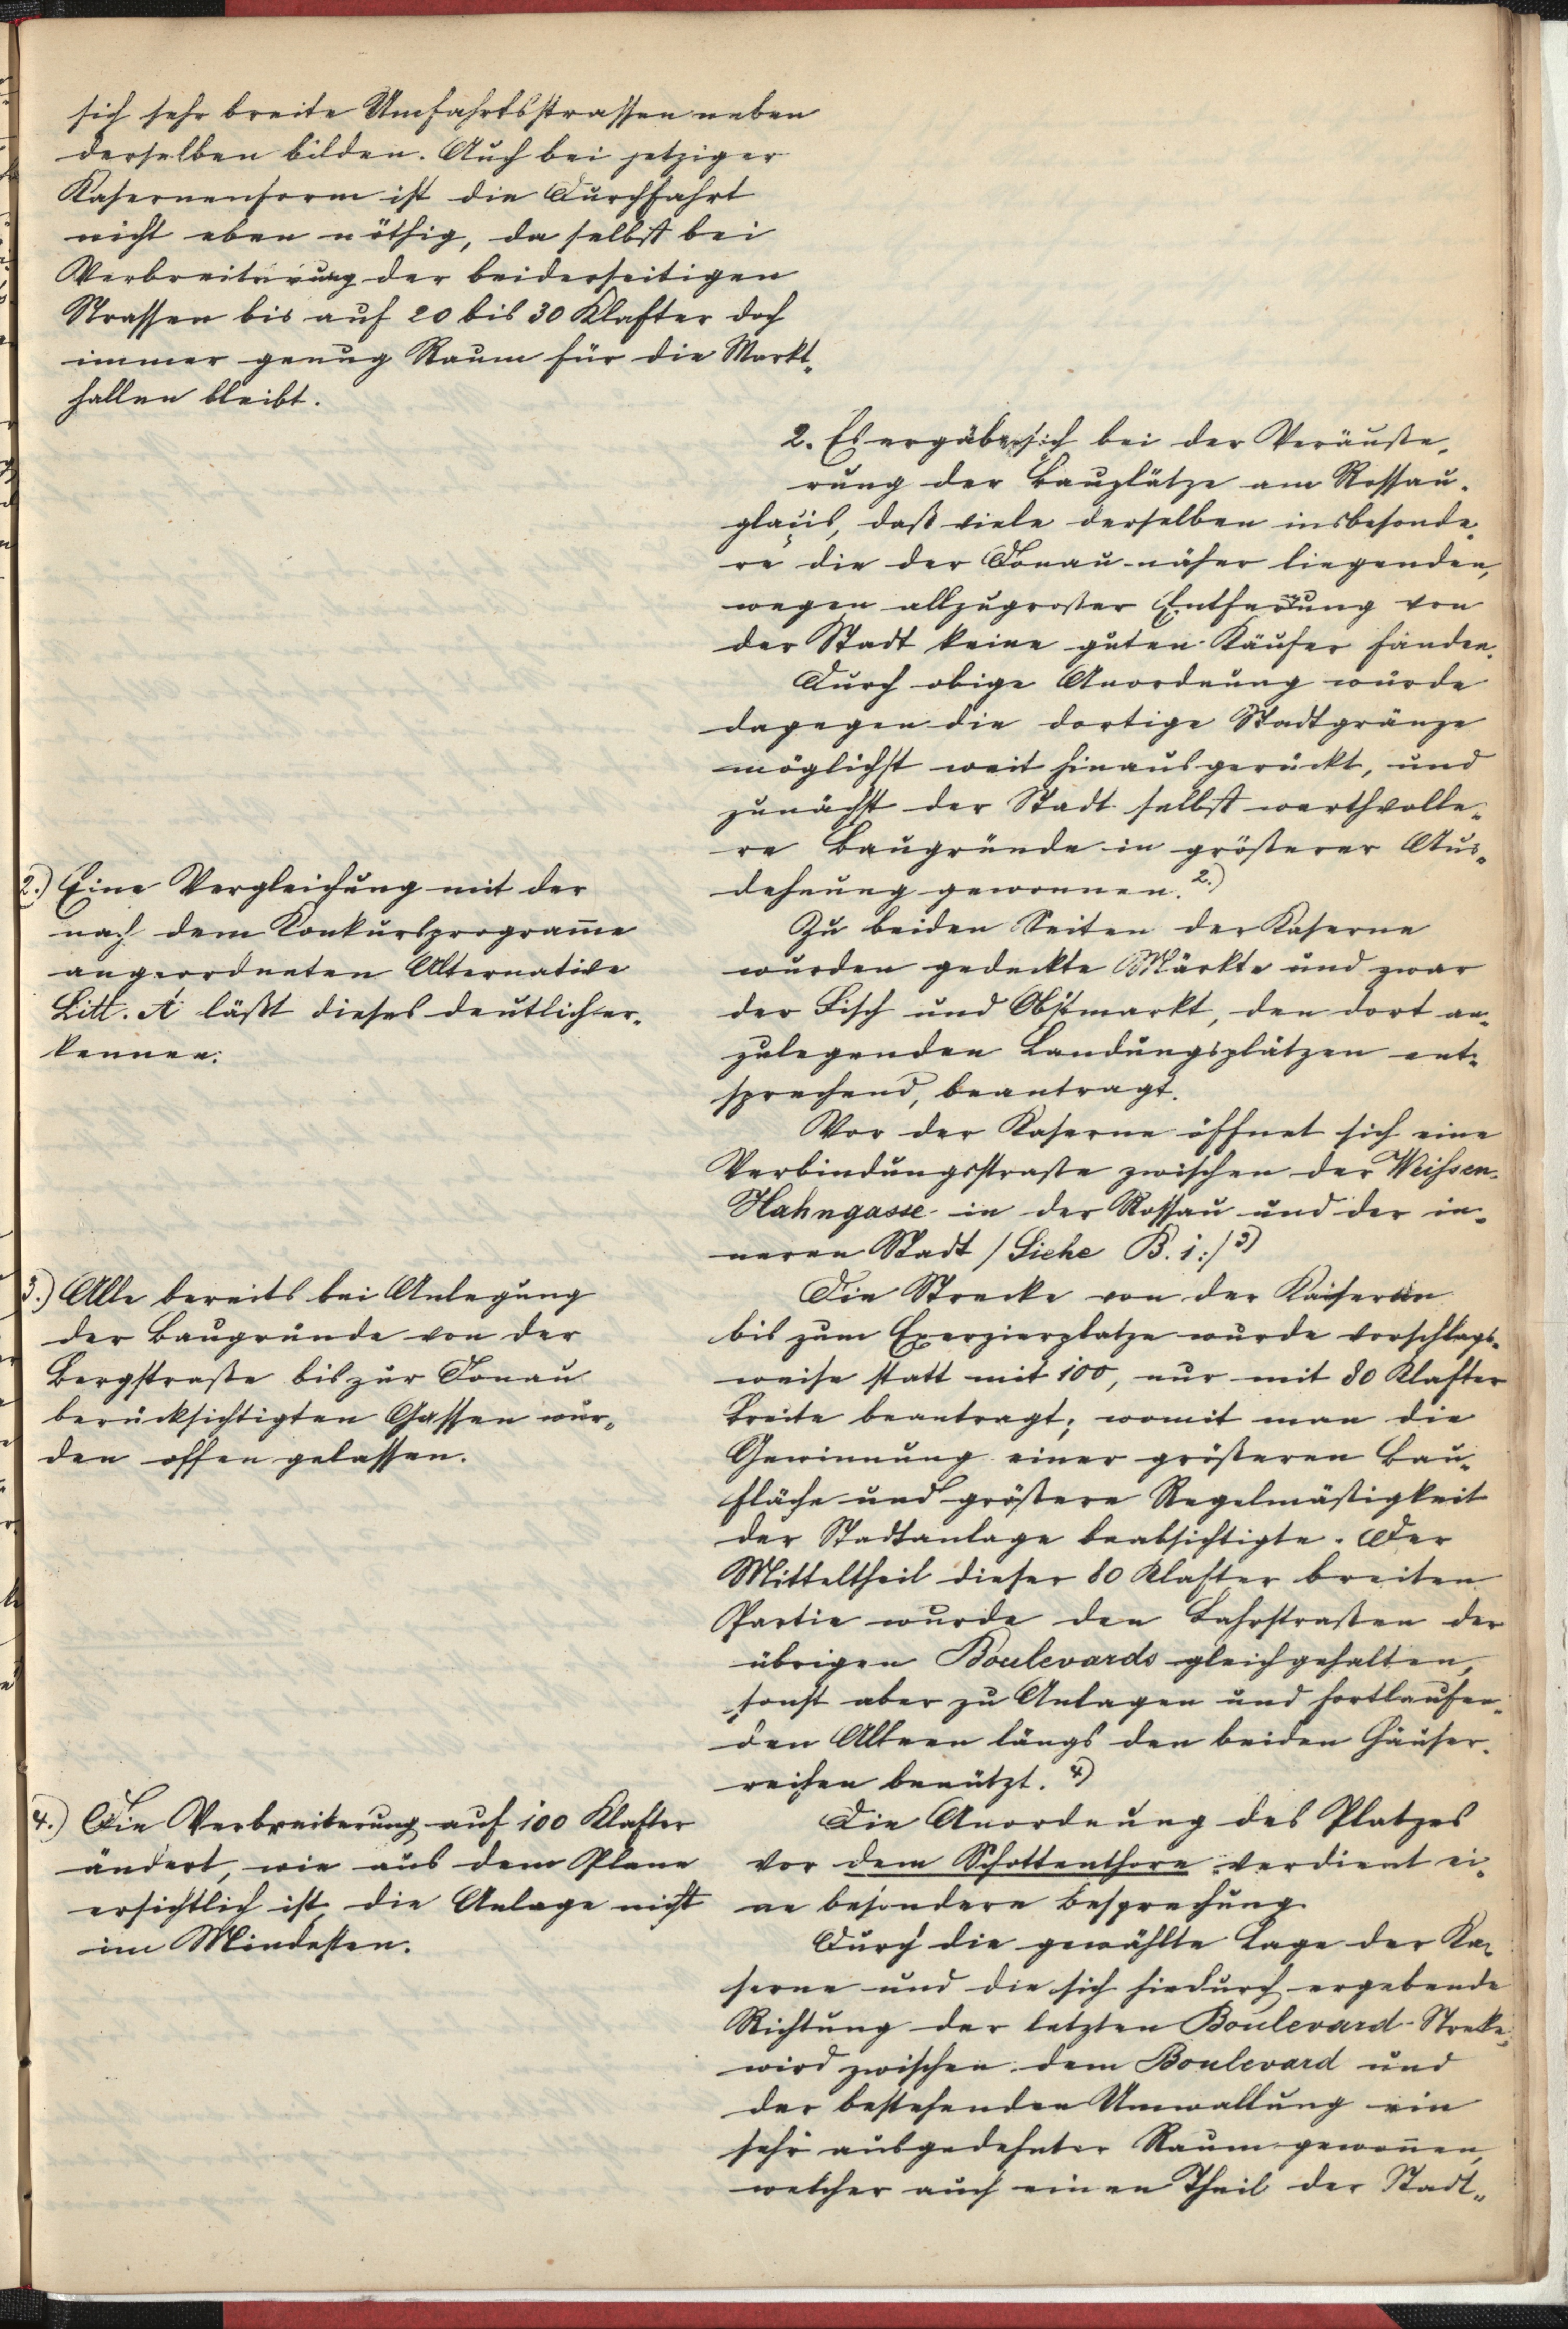 sich sehr breite Umfahrtsstrassen neben
derselben bilden. Auch bei jetziger
Kasernenform ist die Durchfahrt
nicht eben nöthig, da selbst bei
Verbreiterung der beiderseitigen
Strassen bis auf 20 bis 30 Klafter doch
immer genug Raum für die Markt-
hallen bleibt.
2. Es ergäbe sich bei der Veräuße-
rung der Bauplätze am Rossau-
glacis, daß viele derselben insbesonde-
re die der Donau näher liegenden,
wegen allzugroßer Entfernung von
der Stadt keine guten Käufer fänden.
Durch obige Anordnung würde
dagegen die dortige Stadtgränze
möglichst weit hinausgerückt, und
zunächst der Stadt selbst werthvolle-
re Baugründe in größerer Aus-
dehnung gewonnen. 2.)
Zu beiden Seiten der Kaserne
wurden gedeckte Märkte und zwar
der Fisch und Obstmarkt, den dort an-
zulegenden Landungsplätzen ent-
sprechend, beantragt.
Vor der Kaserne öffnet sich eine
Verbindungsstraße zwischen der Weissen-
Hahngasse in der Rossau und der in-
neren Stadt /Siehe B. i:/ 3)
Die Strecke von der Kaserne
bis zum Exerzierplatze wurde vorschlags-
weise statt mit 100, nur mit 80 Klafter
Breite beantragt; womit man die
Gewinnung einer größeren Bau-
fläche und größere Regelmäßigkeit
der Stadtanlage beabsichtigte. Der
Mitteltheil dieser 80 Klafter breiten
Partie wurde den Fahrstraßen der
übrigen Boulevards gleichgehalten,
sonst aber zu Anlagen und fortlaufen-
den Alleen längs den beiden Häuser-
reihen benützt. 4)
Die Anordnung des Platzes
vor dem Schottenthore verdient ei-
ne besondere Besprechung.
Durch die gewählte Lage der Ka-
serne und die sich hiedurch ergebende
Richtung der letzten Boulevard-Strecke,
wird zwischen dem Boulevard und
der bestehenden Umwallung ein
sehr ausgedehnter Raum gewoñen,
welcher auch einen Theil der Stadt-
2.) Eine Vergleichung mit der
nach dem Konkursprogram̄e
angeordneten Alternative
Litt. A läßt dieses deutlich er-
kennen.
3.) Alle bereits bei Anlegung
der Baugründe von der
Bergstraße bis zur Donau
berücksichtigten Gassen wur-
den offen gelassen.
4.) Die Verbreiterung auf 100 Klafter
ändert, wie aus dem Plane
ersichtlich ist die Anlage nicht
im Mindesten.